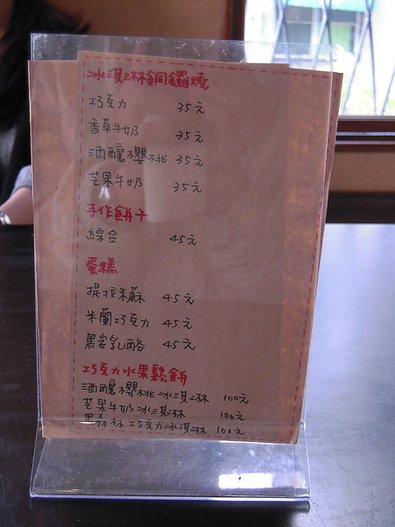 冰淇淋銅鑼燒
巧克力 35元
香草牛奶 35元
酒釀櫻桃 35元
芒果牛奶 35元
手作餅干
綜合 45元
蛋糕
提拉米蘇 45元
米蘭巧克力 45元
黑岩乳酪 45元
巧克力水果鬆餅
酒釀櫻桃冰淇淋 100元
芒果牛奶冰淇淋 100元
黑森林巧克力冰淇淋 100元